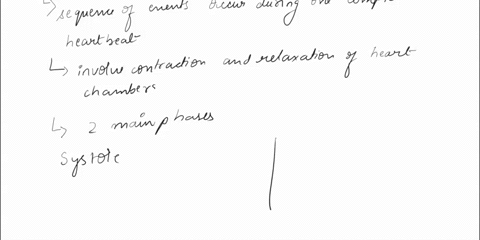 ↳ sequence of events occur during one
heartbeat
↳ involve contraction and relaxation of heart
chambers
↳ 2 main phases
Systole